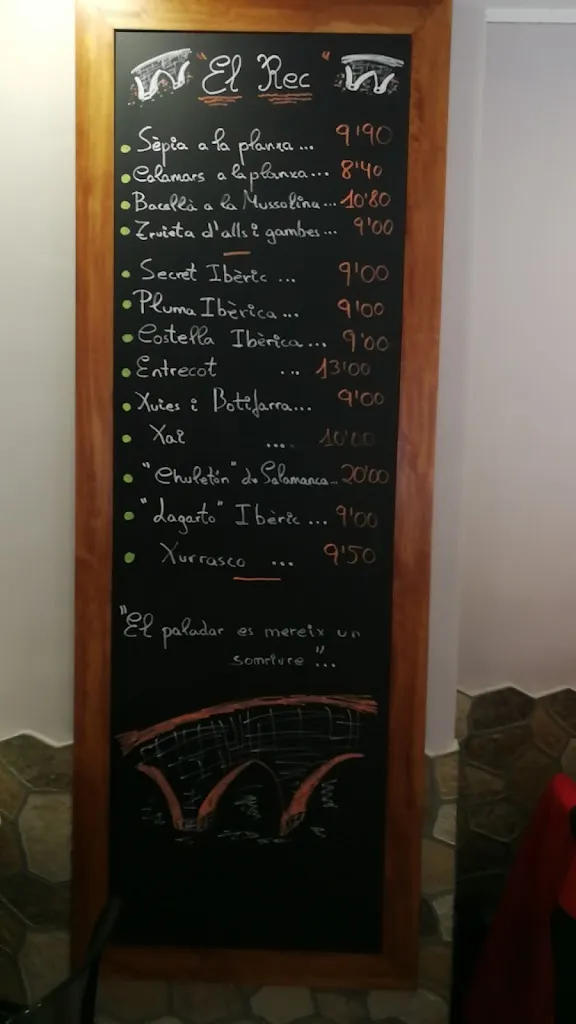 "El Rec"
Sèpia a la planxa... 9'90
Calamars a la planxa... 8'40
Bacallà a la Mussolina... 10'80
Truita d'alls i gambes... 9'00
Secret Ibèric ... 9'00
Pluma Ibèrica... 9'00
Costella Ibèrica... 9'00
Entrecot ... 13'00
Xuies i Botifarra... 9'00
Xai .... 10'00
"Chuletón" de Salamanca... 20'00
"Lagarto" Ibèric ... 9'00
Xurrasco ... 9'50
"El paladar es mereix un
somriure"...